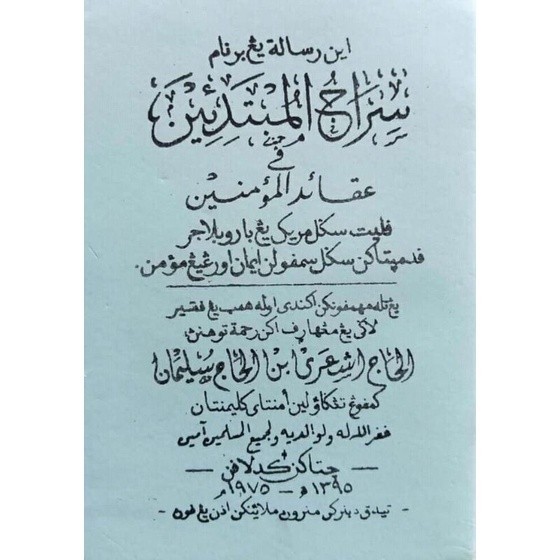 اين رسالة يڠ برنام
سِرَاجُ الْمُبْتَدِئِيْنَ
في
عقائد المؤمنين
ڤليت سكل مريک يڠ بارو بلاجر
ڤد مپتاکن سكل سمڤولن ايمان اورڠ يڠ مؤمن.
يڠ تله مڠهمڤونکن اکندي اوله همب يڠ فقير
لاݢي يڠ مڠهارف اکن رحمة توهنڽ
الحاج اشعري ابن الحاج سليمان
کمڤوڠ تڠکاولين امنتاي کليمنتان
غفر الله له ولوالديه ولجميع المسلمين آمين
— چيتاکن کدلاڤن —
١٣٩٥ ه‍ – ١٩٧٥ م
- تيدق دبنرکن منيرو ملاينکن اذن يڠ ڤون -